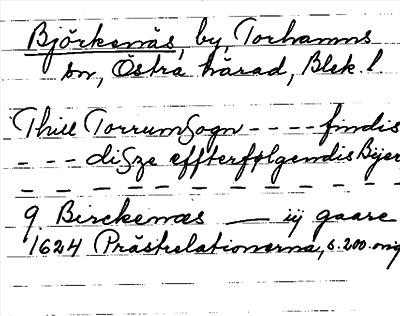 Björkenäs, by, Torhamns
sn, Östra härad, Blek. l.
Thill Torrumsogn - - - - findis
- - - disze effterfølgendis Bijer
- - - - - - - - - - - - - -
9. Birckenæs — iij gaare
1624 Prästrelationerna, s. 200. orig